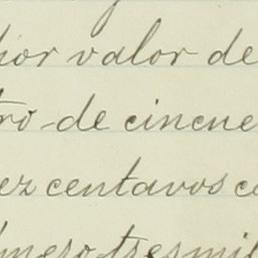 por valor de
tro de cincue
ez centavos c
úmero tres mil